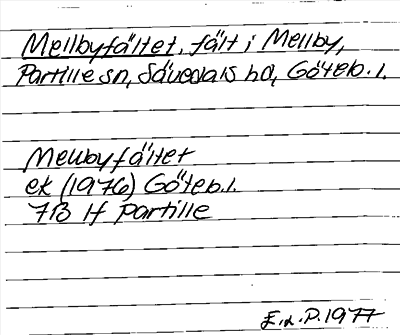 Mellbyfältet, fält i Mellby,
Partille sn, Sävedals hd, Göteb. l.
Mellbyfältet
ek (1976) Göteb. l.
7B 1f Partille
E.L.P. 1977